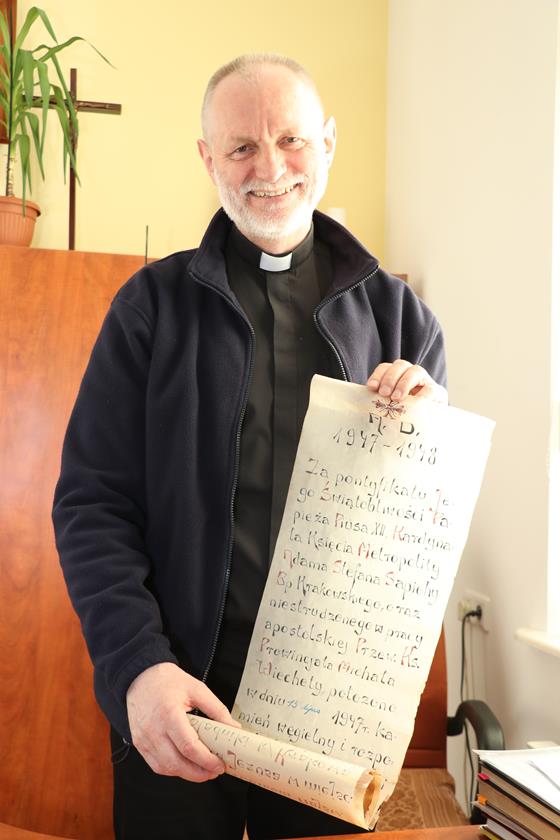 A. D.
1947-1948
Za pontyfikatu Je-
go Świątobliwości Pa-
pieża Piusa XII, Kardyna-
ła Księcia Metropolity
Adama Stefana Sapiehy
Bp Krakowskiego, oraz
niestrudzonego w pracy
apostolskiej Przew. Ks.
Prowincjała Michała
Wiechely, położono
w dniu 13 lipca 1947r. ka-
mień węgielny i rozpo-
Jezusa miłos-